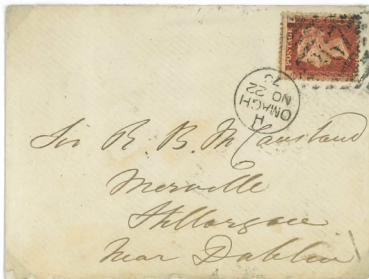 POSTAGE
H
OMAGH
NO 22
Sir R. B. McCausland
Merville
Stillorgan
Near Dublin